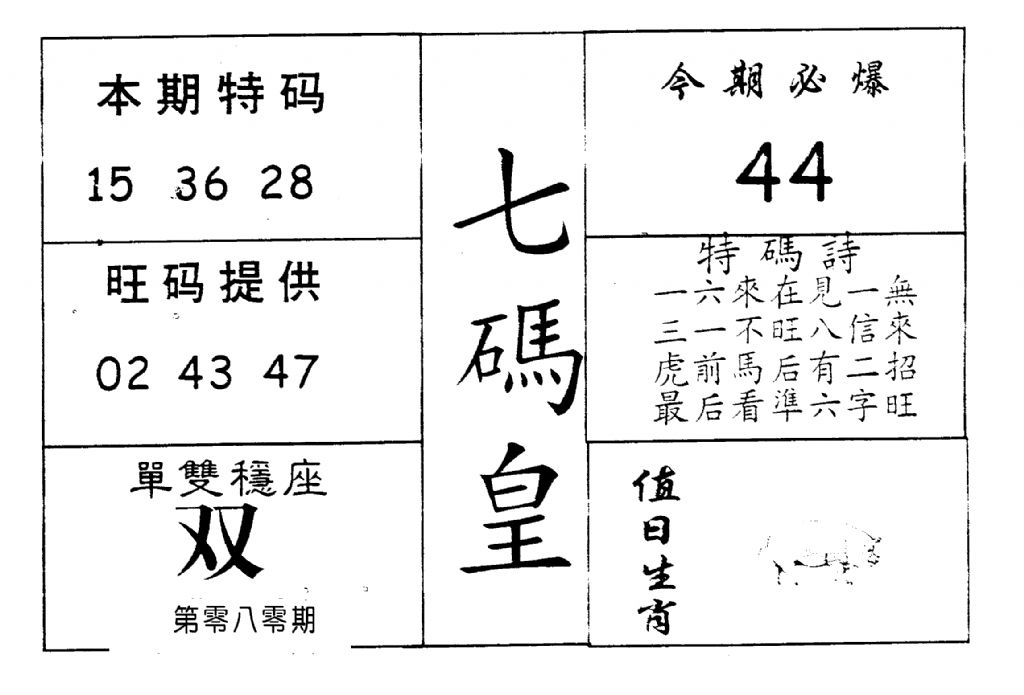 本期特码
15 36 28
旺码提供
02 43 47
單雙穩座
双
第零八零期
七碼皇
今期必爆
44
特碼詩
一六來在見一無
三一不旺八信來
虎前馬后有二招
最后看準六字旺
值日生肖